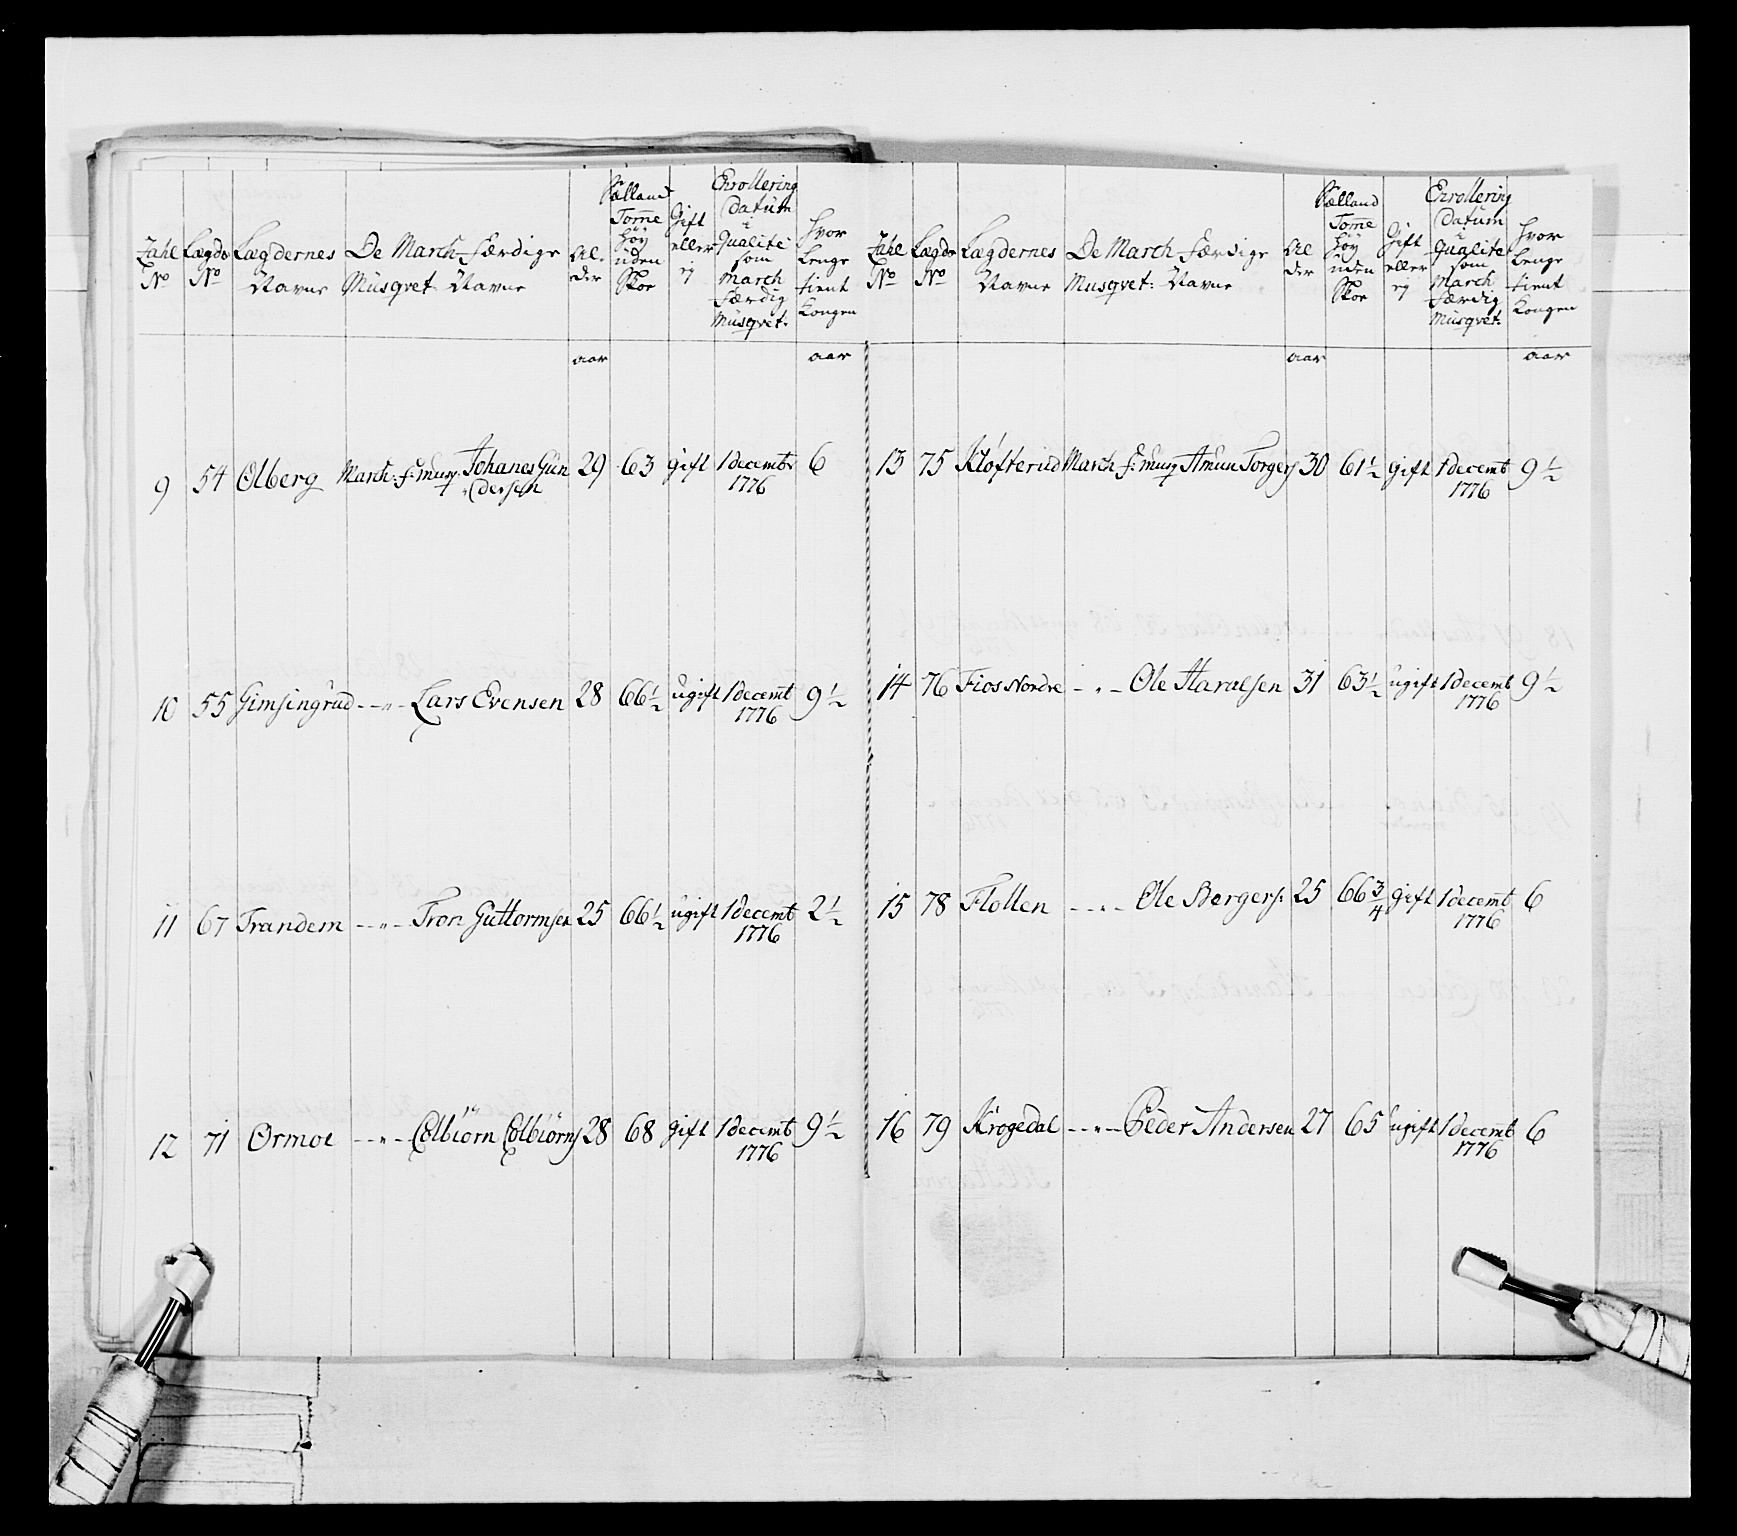 Zahl No
Lægds No
Lægdernes Navne
De March Færdige Musqvet: Navne
Alder
Siælland Tomme høy uden Skoe
Gift eller ej
Enrollering Datum i Qualite som March Færdig Musqvet:
hvor lenge tient Kongen
aar
aar
9 54 Olberg March: f: Musq: Johanes Gundersen 29 63 gift 1 decembr 1776 6
10 55 Gimsingrud — " — Lars Evensen 28 66 1/2 ugift 1 decembr 1776 9 1/2
11 67 Trandem — " — Tron Guttormsen 25 66 1/2 ugift 1 decembr 1776 2 1/2
12 71 Ormoe — " — Colbiørn Colbiørns 28 68 gift 1 decembr 1776 9 1/2
Zahl No
Lægds No
Lægdernes Navne
De March Færdige Musqvet: Navne
Alder
Siælland Tomme høy uden Skoe
Gift eller ej
Enrollering Datum i Qualite som March Færdig Musqvet:
hvor lenge tient Kongen
aar
aar
13 75 Kløfterud March f: Musq Amun Torgers 30 61 1/2 gift 1 decembt 1776 9 1/2
14 76 Fios Nordre — " — Ole Haraldsen 31 63 1/2 ugift 1 decembt 1776 9 1/2
15 78 Flotten — " — Ole Borgers: 25 66 3/4 gift 1 decembt 1776 6
16 79 Krogedal — " — Peder Andersen 27 65 ugift 1 decembt 1776 6